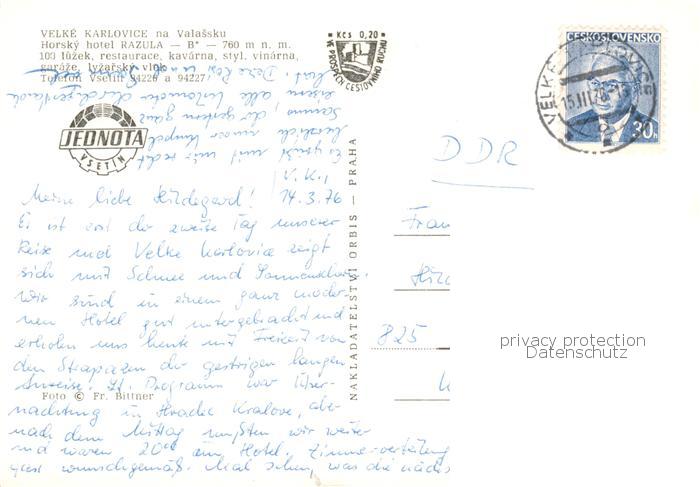 VELKÉ KARLOVICE na Valašsku
Horský hotel RAZULA — B* — 760 m n. m.
103 lůžek, restaurace, kavárna, styl. vinárna,
garáže, lyžařský vlek
Telefon Vsetín 94226 a 94227
Kčs 0,20
VE PROSPĚCH CESTOVNÍHO RUCHU
ČESKOSLOVENSKO
30h
VELKÉ KARLOVICE
15.III.76
JEDNOTA
VSETÍN
V.K.,
14.3.76
Meine liebe Hildegard!
Es ist erst der zweite Tag unserer
Reise und Velke Karlovice zeigt
sich mit Schnee und Sonnenschein.
Wir sind in einem ganz moder-
nen Hotel gut untergebracht und
erholen uns heute mit Freizeit von
den Strapazen der gestrigen langen
Anreise. Lt. Programm war Über-
nachtung in Hradec Kralove, aber
nach dem Mittag mußten wir weiter
und waren 20 am Hotel. Zimmerverteilung
wunschgemäß. Mal sehen, was die nächs
Foto © Fr. Bittner
NAKLADATELSTVÍ ORBIS — PRAHA
DDR
Frau
Hild
825
privacy protection
Datenschutz